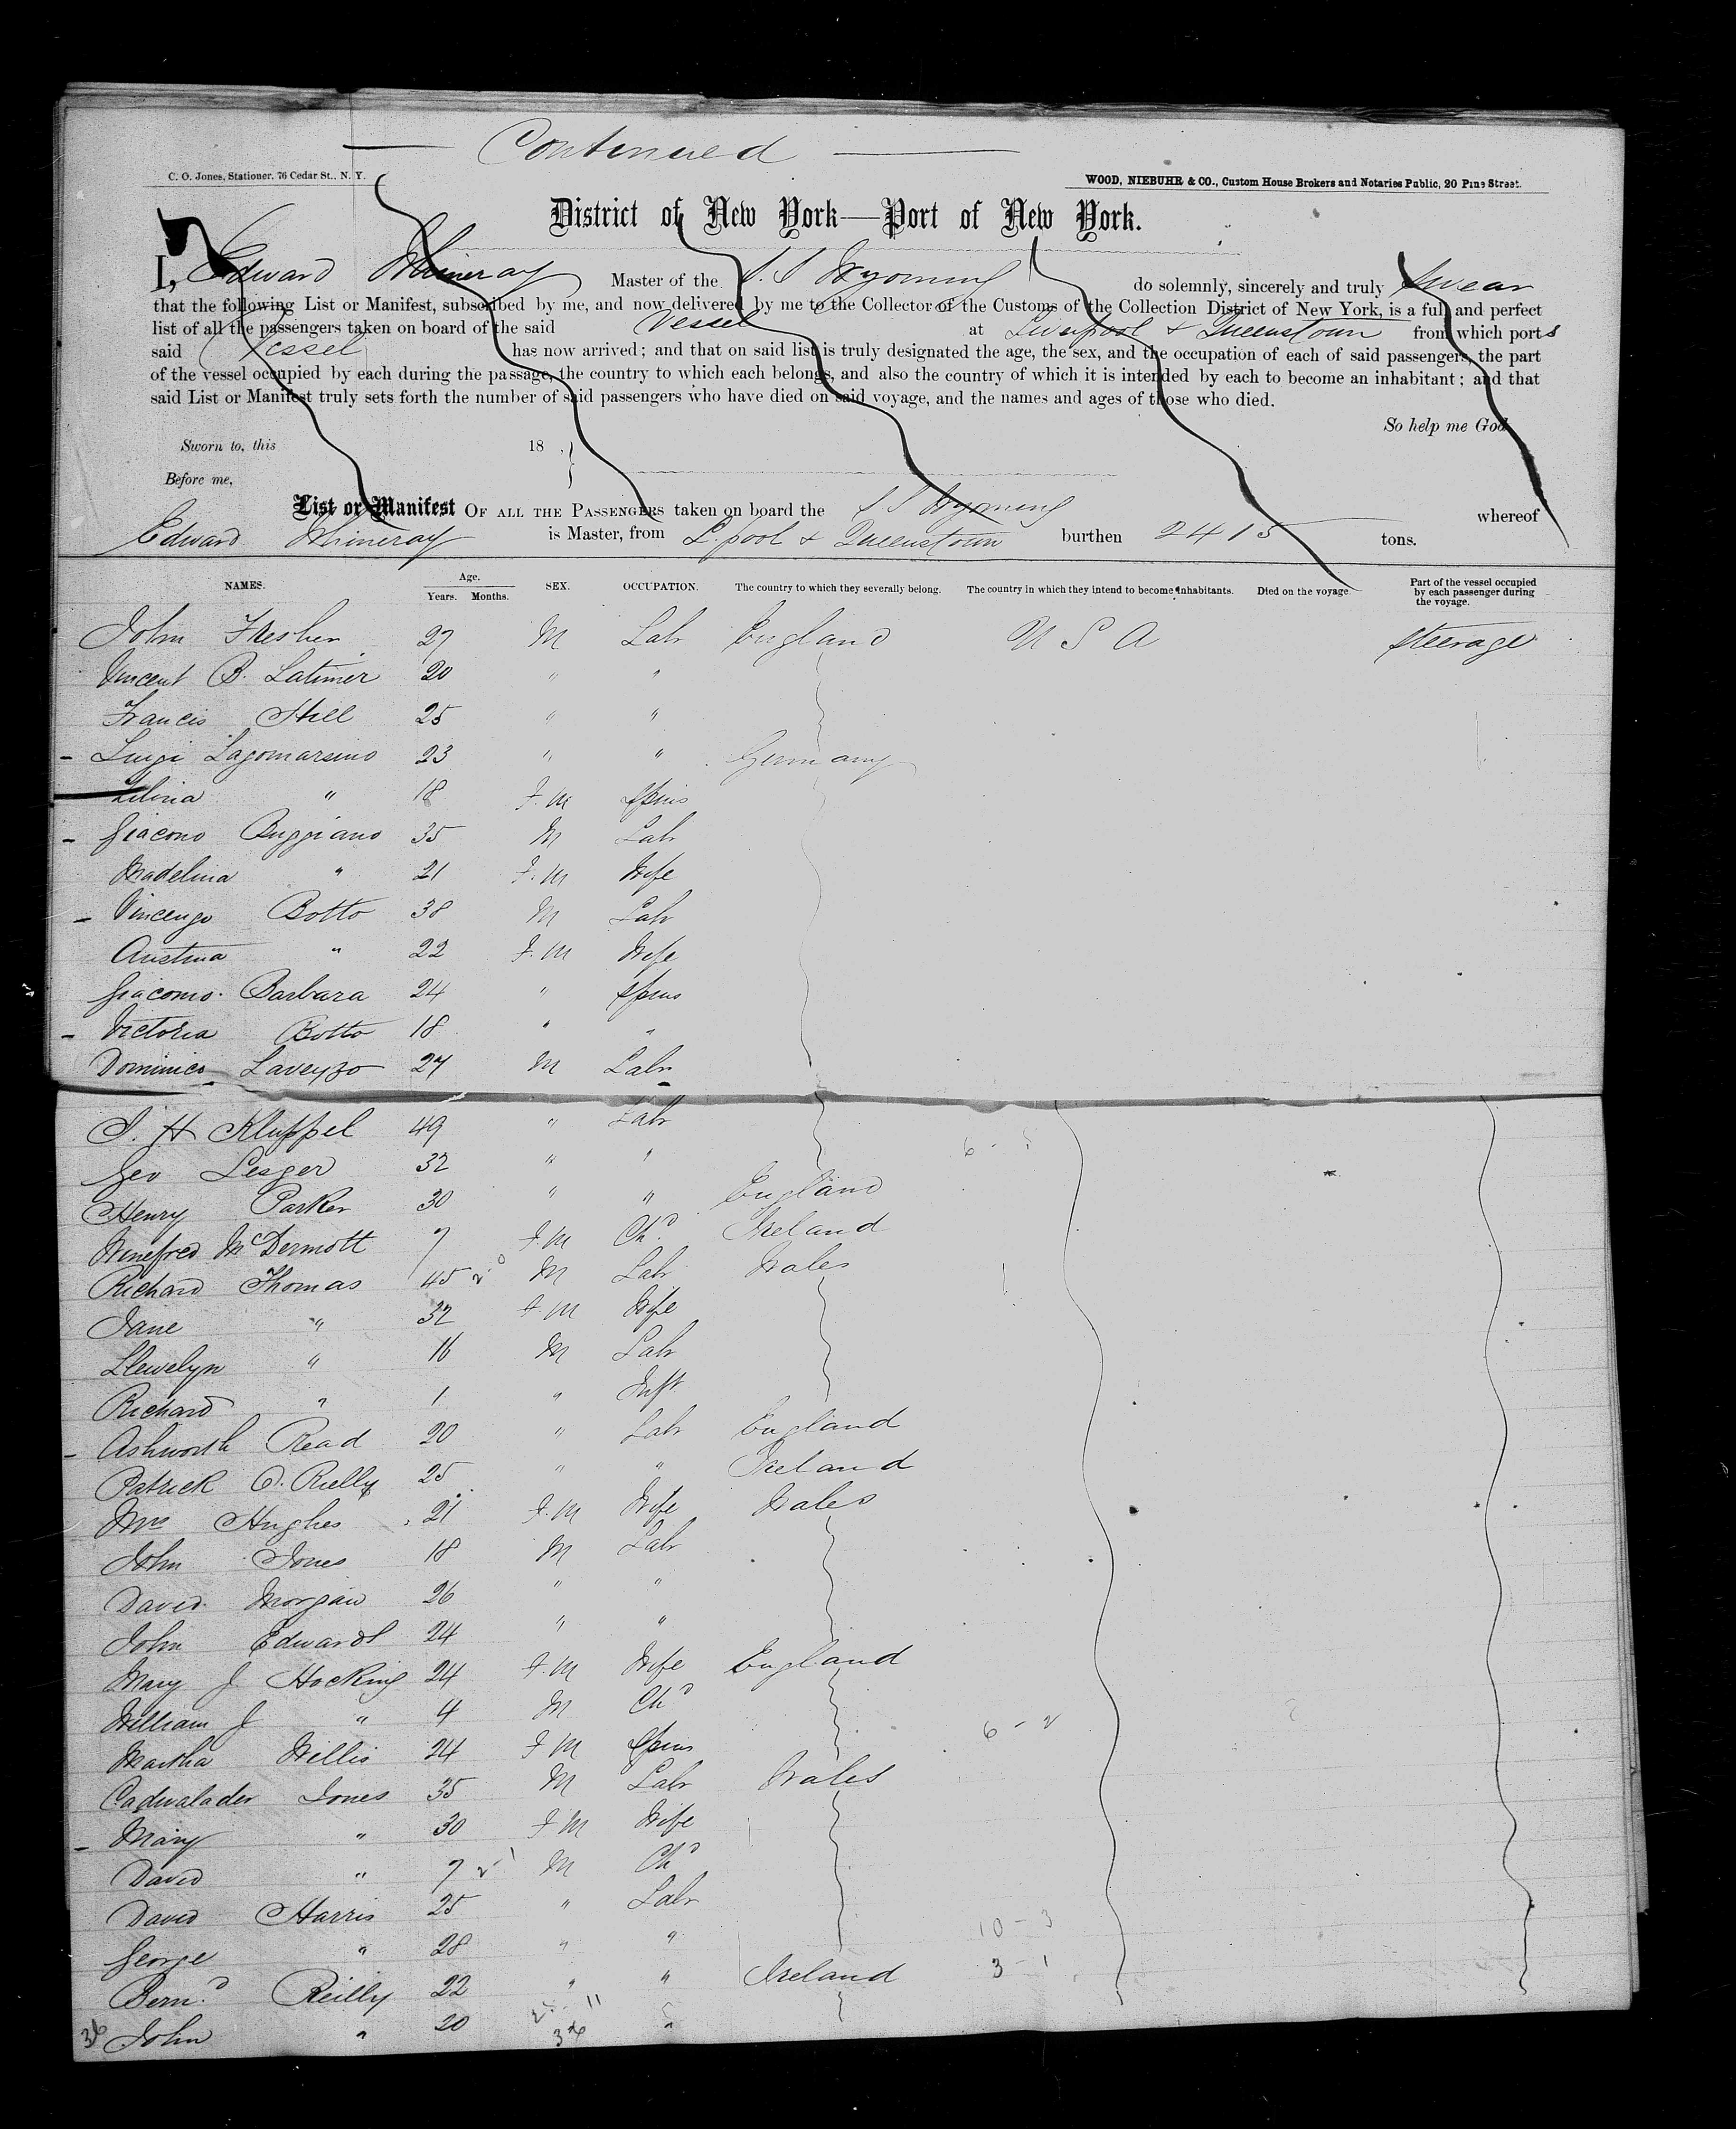 Continued
C. O. Jones, Stationer, 76 Cedar St., N. Y.
WOOD, NIEBUHR & CO., Custom House Brokers and Notaries Public, 20 Pine Street.
District of New York—Port of New York.
I, Edward Whineray Master of the S. S Wyoming do solemnly, sincerely and truly swear
that the following List or Manifest, subscribed by me, and now delivered by me to the Collector of the Customs of the Collection District of New York, is a full and perfect
list of all the passengers taken on board of the said Vessel at Liverpool & Queenstown from which ports
said Vessel has now arrived; and that on said list is truly designated the age, the sex, and the occupation of each of said passengers, the part
of the vessel occupied by each during the passage, the country to which each belongs, and also the country of which it is intended by each to become an inhabitant; and that
said List or Manifest truly sets forth the number of said passengers who have died on said voyage, and the names and ages of those who died.
So help me God
Sworn to, this 18 ,
Before me,
List or Manifest OF ALL THE PASSENGERS taken on board the S S Wyoming whereof
Edward Whineray is Master, from L.pool & Queenstown burthen 2415 tons.
NAMES. Age. Years. Months. SEX. OCCUPATION. The country to which they severally belong. The country in which they intend to become inhabitants. Died on the voyage. Part of the vessel occupied by each passenger during the voyage.
John 27 M Labr England U S A Steerage
Vincent B. Latimer 20 " "
Francis Hill 25 " "
- Luigi Lagomarsino 23 " " Germany
" 18 F.M Spins
- Giacomo Buggiano 35 M Labr
Madelina " 21 F.M Wife
- Vincengo Botto 38 M Labr
Austina " 22 F.M Wife
Giacomo Barbara 24 " Spins
- Victoria Botto 18 " "
Dominico Laveyzo 27 M Labr
J. H Kluppel 49 " Labr
Geo Lesger 32 " "
Henry Parker 30 " " England
Winefred McDermott 7 F.M Chd Ireland
Richard Thomas 45 M Labr Wales
Jane " 32 F.M Wife
Llewelyn " 16 M Labr
Richard " 1 " Inft
- Ashworth Read 20 " Labr England
Patrick O.Rielly 25 " " Ireland
Mrs Hughes 21 F.M Wife Wales
John Jones 18 M Labr
David Morgan 26 " "
John Edwards 24 " "
Mary J Hocking 24 F.M Wife England
William J " 4 M Chd
Martha Willis 24 F M Spins 6 - 2
Cadwalader Jones 35 M Labr Wales
- Mary " 30 F M Wife
David " 7 M Chd
David Harris 25 " Labr
George " 28 " " 10 - 3
Bernd Reilly 22 " " Ireland 3 - 1
36 John " 20 "